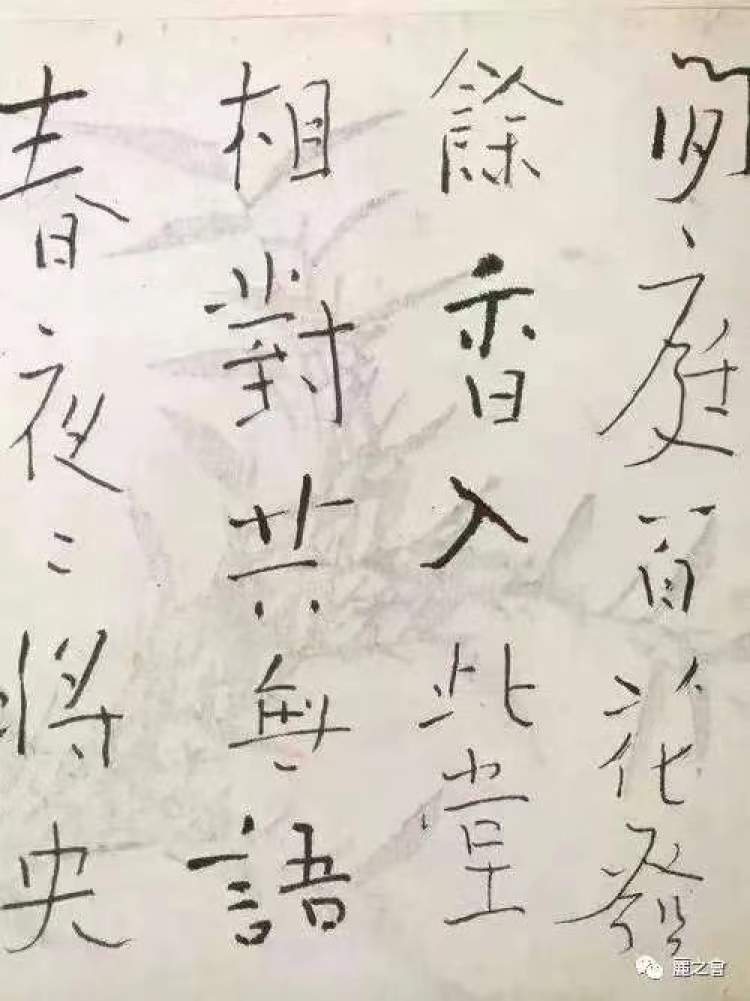 閒庭百花發
餘香入此堂
相對共無語
春夜〻將央
麗之會